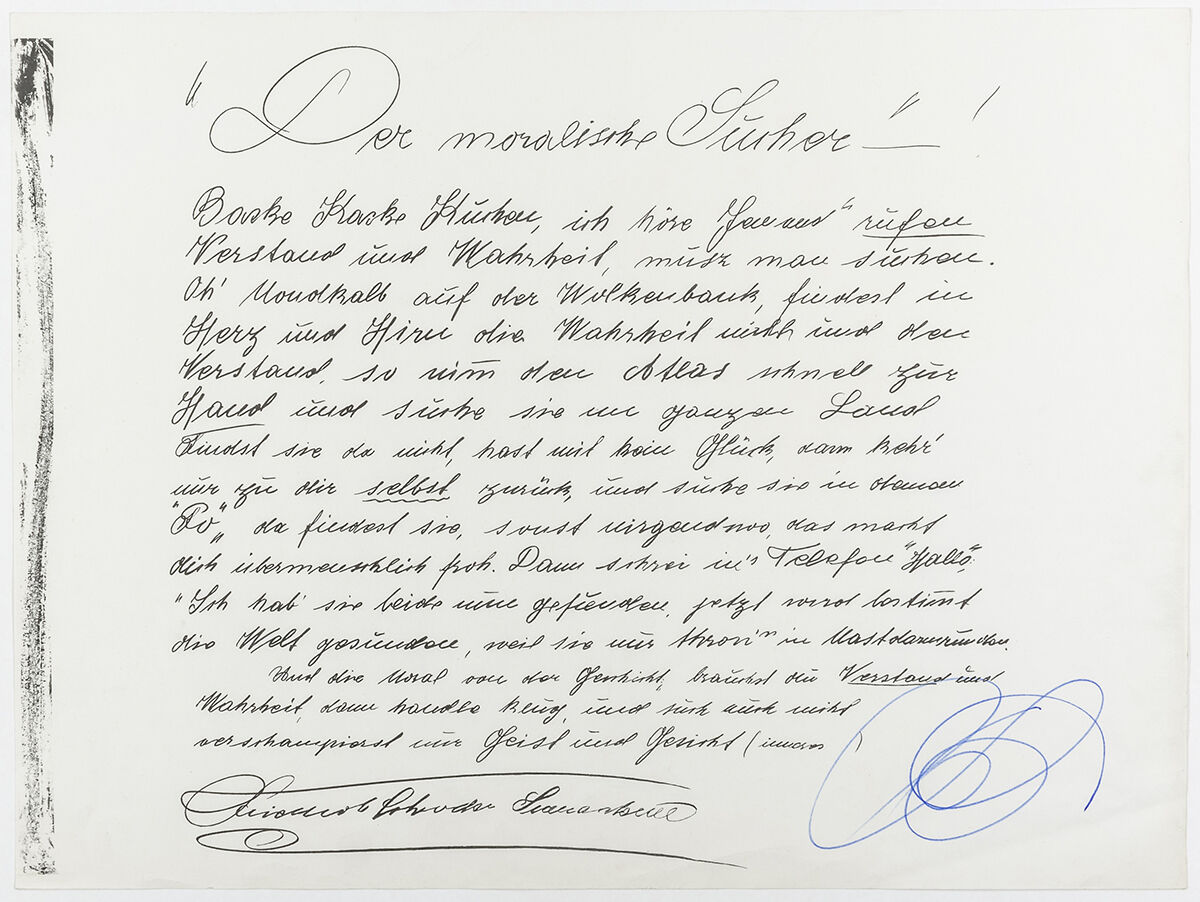 "Der moralische Sucher" — !
Backe Kacke Kuchen, ich höre „Jemand“ rufen
Verstand und Wahrheit, musz man suchen.
Oh' Mondkalb auf der Wolkenbank, findest in
Herz und Hirn die Wahrheit nicht und den
Verstand, so nim̅ den Atlas schnell zur
Hand und suche sie im ganzen Land
Findst sie da nicht, hast mit kein Glück, dann kehr'
nur zu dir selbst zurück, und suche sie in deinen
"Po„ da findest sie, sonst nirgendwo, das macht
dich übermenschlich froh. Dann schrei in's Telefon "Hallo„
"Ich hab' sie beide nun gefunden, jetzt wird bestim̅t
die Welt gesunden, weil sie nur thron'n in Mastdarmrunden.
Und die Moral von der Geschicht, brauchst du Verstand und
Wahrheit, dann handle klug, und such auch nicht
verschampierst nur Geist und Gesicht (inneres )
Friedrich Schröder Sonnenstern